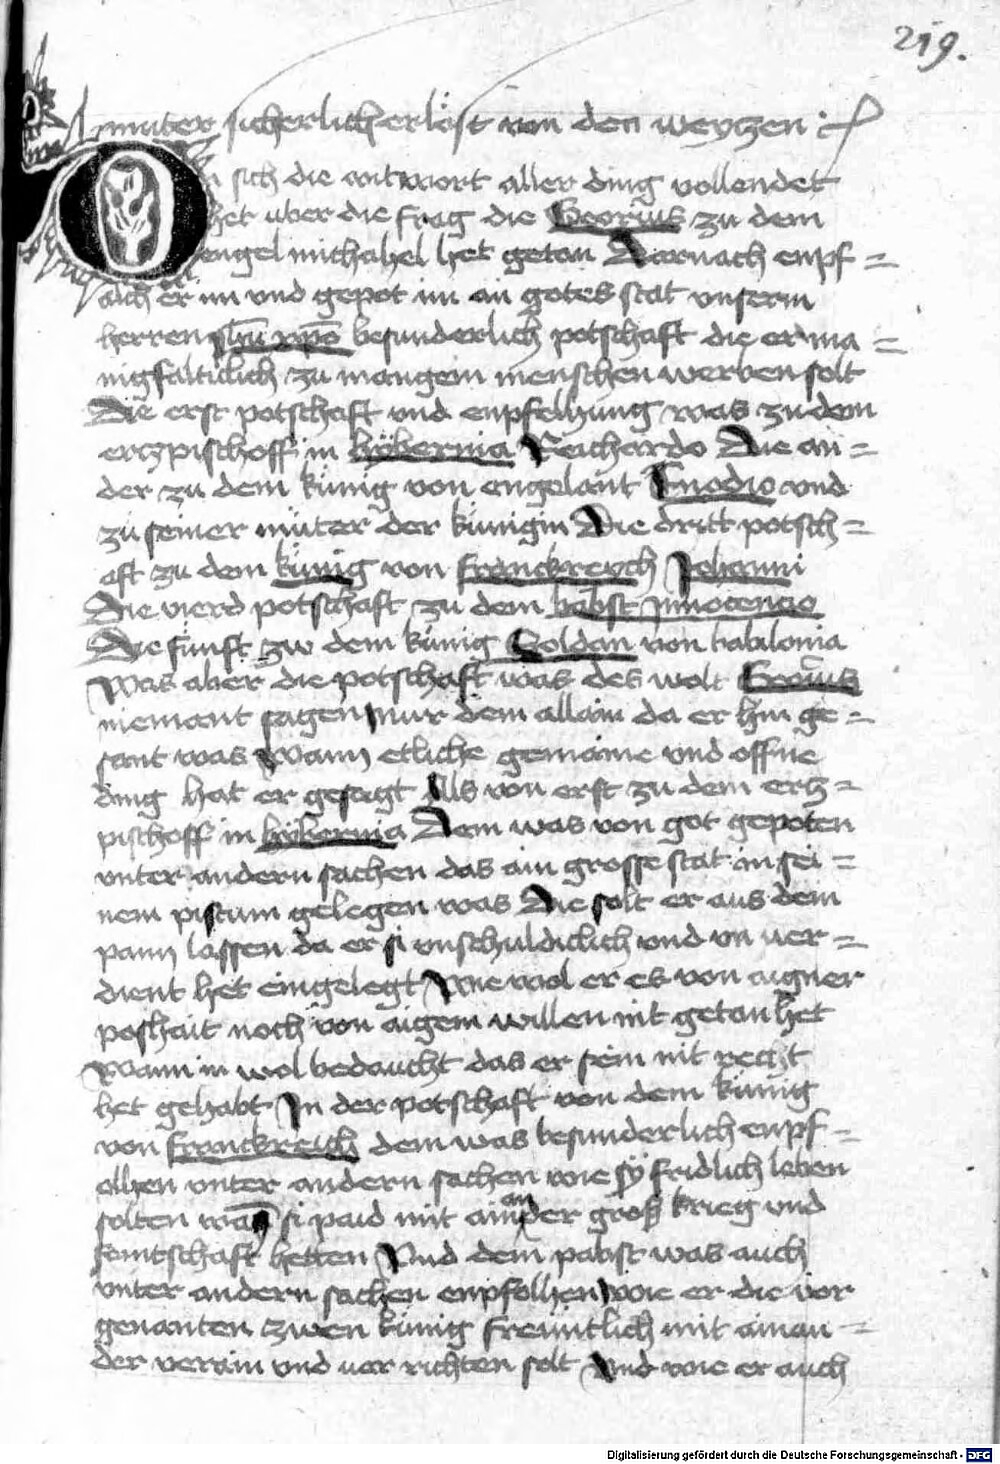 219.
muter sicherlich erlöst von den weyczen :
Da sich die antwort aller ding vollendet
het uber die frag die Georius zu dem
engel michahel het getan Darnach enpf =
alch er im und gepot im an gotes stat unserm
herren ihu xpo besunderlich potschaft die er ma =
nigfalticlich zu mangem menschen werben solt
Die erst potschaft und enpfelhung was zu dem
erczpischoff in hybernia Reichardo Die an =
der zu dem künig von engelant und
zu seiner müter der künigin Die dritt potsch =
aft zu dem künig von Franckreych Johanni
Die vierd potschaft zu dem babst Innocencio
Die fünft zw dem künig Soldan von babilonia
Was aber die potschaft was des wolt Georius
niemant sagen nur dem allain da er hin ge =
sant was Wann etliche gemaine und offne
ding hat er gesagt Als von erst zu dem ercz =
pischoff in hybernia Dem was von got gepoten
unter andern sachen das ain grosse stat in sei =
nem pistum gelegen was Die solt er aus dem
pann lassen da er si unschuldiclich und un ver =
dient het eingelegt Wie wol er es von aigner
poshait noch von aigem willen nit getan het
Wann in wol bedaucht das er sein nit recht
het gehabt In der potschaft von dem künig
von Franckreich dem was besunderlich enpf =
olhen unter andern sachen wie sy fridlich leben
solten wan si paid mit ainander gross krieg und
feintschaft hetten Und dem pabst was auch
unter andern sachen enpfolhen wie er die vor
genanten zwen künig freuntlich mit ainan =
der verain und ver richten solt Und wie er auch
Digitalisierung gefördert durch die Deutsche Forschungsgemeinschaft - DFG